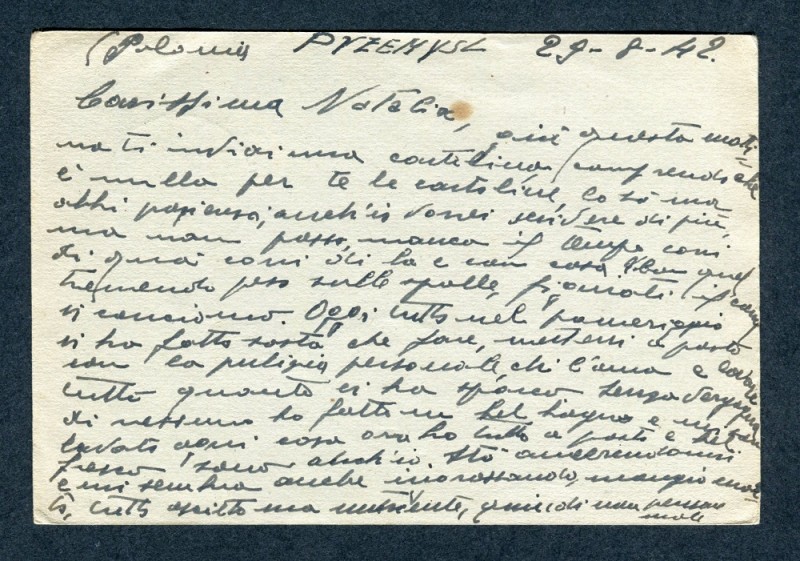 (Polonia PVZEMYSL 29-8-42.
Carissima Natalia, già questa mati=
na ti inviai una cartolina comprendo che
è nulla per te le cartoline, lo so ma
abbi pazienza, anch'io vorrei scrivere di più,
ma non posso, manca il tempo corri
di qua corri di là e con cosa quel
tremendo peso sulle spalle, figurati il
si canciemo. Oggi tutto nel pomeriggio
si ha fatto sosta che fare, mettersi a posto
con la pulizia personale, chi l'ama e lavare
tutto quanto si ha sporco senza vergogna
di nessuno ho fatto un bel bagno e mi son
lavato ogni cosa ora ho tutto a posto e bel
fresco sono anch'io. Sto
e mi sembra anche ingrassando, mangio
tutto asciutto ma nutriente, quindi non pensar
male